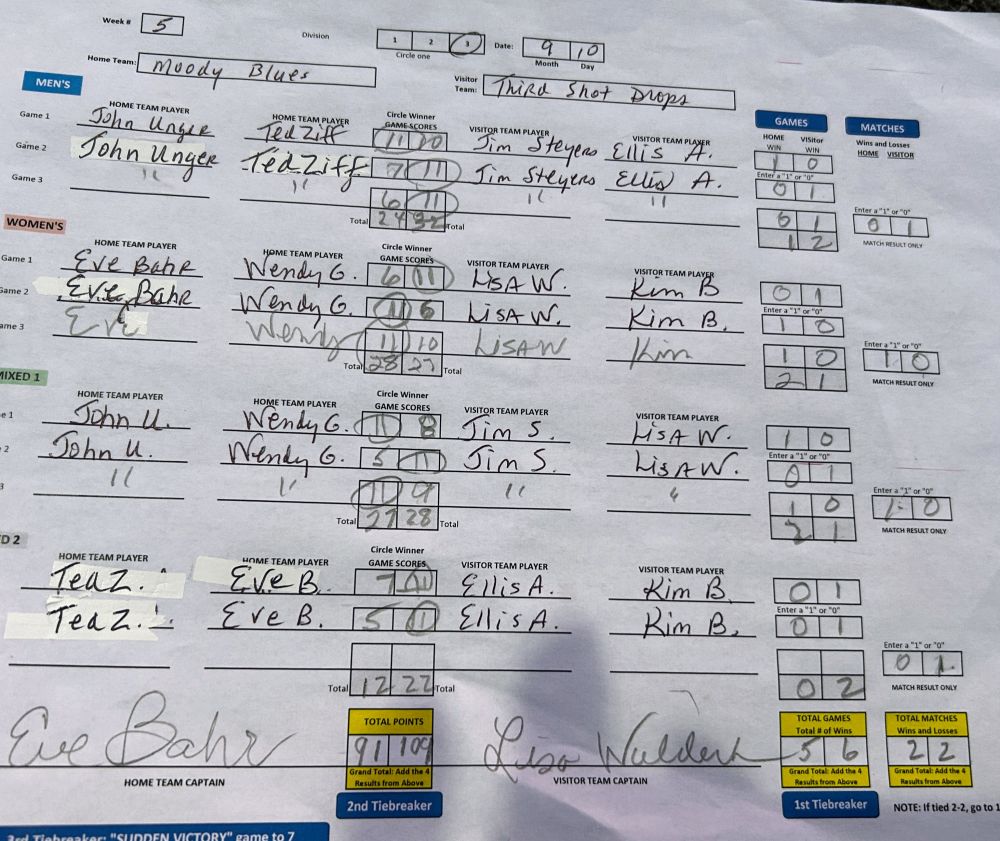 Week # 5
Division 1 2 3 Date: 9 10
Circle one Month Day
Home Team: Moody Blues Visitor Team: Third Shot Drops
MEN'S GAMES MATCHES
HOME TEAM PLAYER HOME TEAM PLAYER Circle Winner GAME SCORES VISITOR TEAM PLAYER VISITOR TEAM PLAYER HOME WIN Visitor WIN Wins and Losses HOME VISITOR
Game 1 John Unger Ted Ziff 11 10 Jim Steyers Ellis A. 1 0
Enter a "1" or "0"
Game 2 John Unger Ted Ziff 7 11 Jim Steyers Ellis A. 0 1
Game 3 " " 6 11 " " 0 1
Enter a "1" or "0"
Total 24 32 Total 1 2 0 1
MATCH RESULT ONLY
WOMEN'S
HOME TEAM PLAYER HOME TEAM PLAYER Circle Winner GAME SCORES VISITOR TEAM PLAYER VISITOR TEAM PLAYER
Game 1 Eve Bahr Wendy G. 6 11 Lisa W. Kim B 0 1
Enter a "1" or "0"
Game 2 Eve Bahr Wendy G. 11 6 Lisa W. Kim B. 1 0
ame 3 Eve Wendy 11 10 Lisa W Kim 1 0
Enter a "1" or "0"
Total 28 27 Total 2 1 1 0
MATCH RESULT ONLY
MIXED 1
HOME TEAM PLAYER HOME TEAM PLAYER Circle Winner GAME SCORES VISITOR TEAM PLAYER VISITOR TEAM PLAYER
e 1 John U. Wendy G. 11 8 Jim S. Lisa W. 1 0
Enter a "1" or "0"
2 John U. Wendy G. 5 11 Jim S. Lisa W. 0 1
3 " " 11 9 " " 1 0
Enter a "1" or "0"
Total 27 28 Total 2 1 1 0
MATCH RESULT ONLY
D 2
HOME TEAM PLAYER HOME TEAM PLAYER Circle Winner GAME SCORES VISITOR TEAM PLAYER VISITOR TEAM PLAYER
Ted Z. Eve B. 7 11 Ellis A. Kim B. 0 1
Enter a "1" or "0"
Ted Z. Eve B. 5 11 Ellis A. Kim B. 0 1
Enter a "1" or "0"
0 1
Total 12 22 Total 0 2
MATCH RESULT ONLY
TOTAL POINTS TOTAL GAMES TOTAL MATCHES
Total # of Wins Wins and Losses
Eve Bahr 91 109 Lisa 5 6 2 2
HOME TEAM CAPTAIN Grand Total: Add the 4 Results from Above VISITOR TEAM CAPTAIN Grand Total: Add the 4 Results from Above Grand Total: Add the 4 Results from Above
2nd Tiebreaker 1st Tiebreaker NOTE: If tied 2-2, go to 1
3rd Tiebreaker: "SUDDEN VICTORY" game to 7